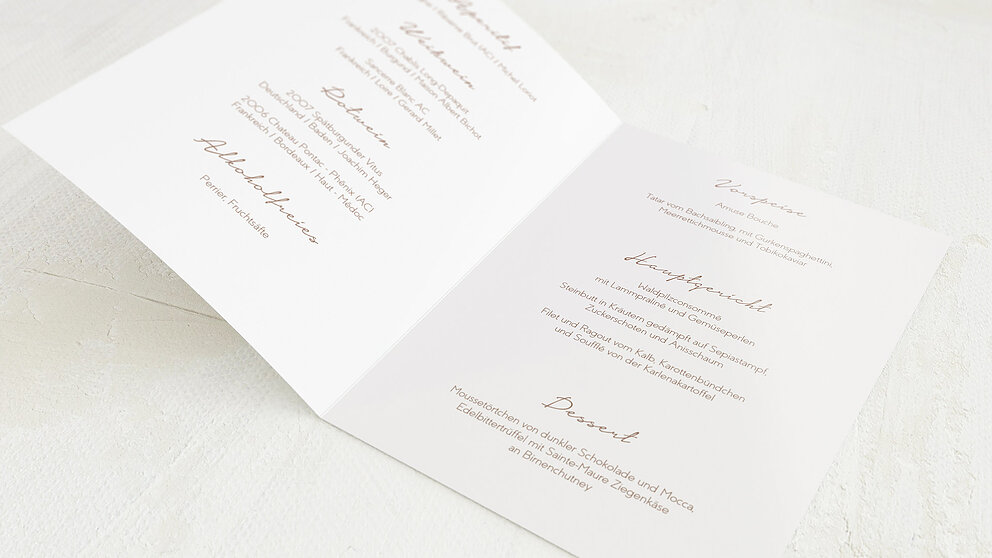 Aperitif
Brut (AC) | Michel Loriot
Weißwein
2007 Chablis Long-Depaquit
Frankreich | Burgund | Maison Albert Bichot
Sancerre Blanc AC
Frankreich | Loire | Gerard Millet
Rotwein
2007 Spätburgunder Vitus
Deutschland | Baden | Joachim Heger
2006 Chateau Pontac - Phénix (AC)
Frankreich | Bordeaux | Haut - Médoc
Alkoholfreies
Perrier, Fruchtsäfte
Vorspeise
Amuse Bouche
Tatar vom Bachsaibling, mit Gurkenspaghettini,
Meerrettichmousse und Tobikokaviar
Hauptgericht
Waldpilzconsommé
mit Lammpraliné und Gemüseperlen
Steinbutt in Kräutern gedämpft auf Sepiastampf,
Zuckerschoten und Anisschaum
Filet und Ragout vom Kalb, Karottenbündchen
und Soufflé von der Karlenakartoffel
Dessert
Moussetörtchen von dunkler Schokolade und Mocca,
Edelbittertrüffel mit Sainte-Maure Ziegenkäse
an Birnenchutney